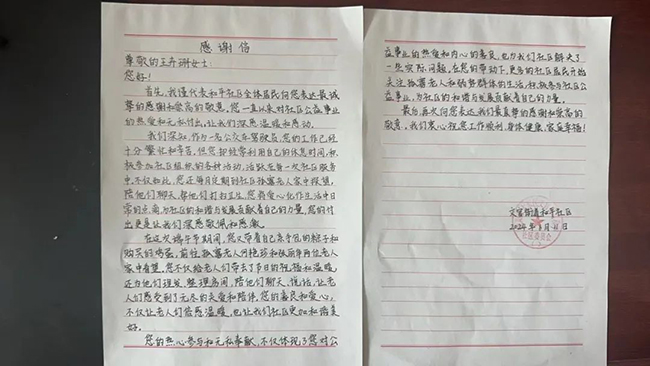 感谢信
尊敬的王丹琳女士:
您好!
首先,我谨代表和平社区全体居民向您表达最诚
挚的感谢和崇高的敬意,您一直以来对社区公益事业
的热爱和无私付出,让我们深感温暖和感动。
我们深知,作为一名公交车驾驶员,您的工作已经
十分繁忙和辛苦,但您却经常利用自己的休息时间,积
极参加社区组织的各种活动,活跃在每一次社区服务
中,不仅如此,您还每月定期到社区孤寡老人家中探望,
陪他们聊天,帮他们打扫卫生,您将爱心化作生活中日
常的点滴,为社区的和谐与发展贡献着自己的力量,您的付
出更是让我们深感敬佩和感激。
在这次端午节期间,您又带着自己亲手包的粽子和
购买的鸡蛋,前往孤寡老人闫艳珍和张丽华两位老人
家中看望,您不仅给老人们带去了节日的祝福和温暖,
还为他们理发、整理房间,陪他们聊天、说话,让老
人们感受到了无尽的关爱和陪伴,您的善良和爱心,
不仅让老人们倍感温暖,也让我们社区更加和谐美
好。
您的热心参与和无私奉献,不仅体现了您对公
益事业的热爱和内心的善良,也为我们社区解决了
一些实际问题,在您的带动下,更多的社区居民开始
关注孤寡老人和弱势群体的生活,积极参与社区公
益事业,为社区的和谐与发展贡献着自己的力量。
最后,再次向您表达我们最真挚的感谢和崇高的
敬意,我们衷心祝您工作顺利、身体健康、家庭幸福!
文官街道和平社区
2024年6月11日